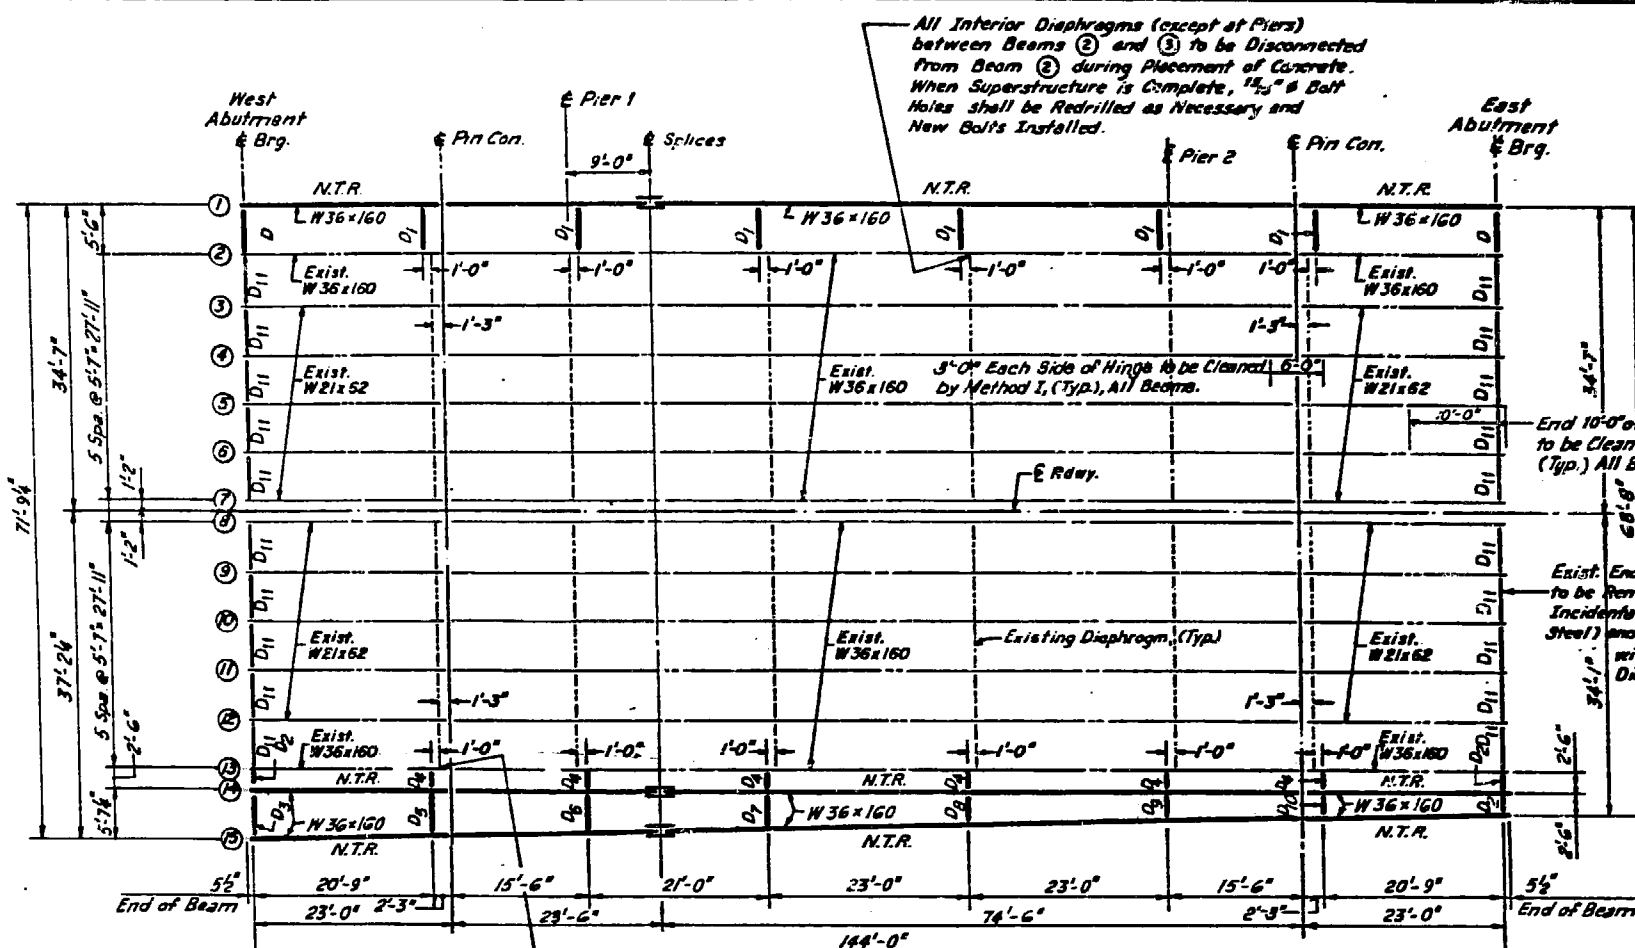 All Interior Diaphragms (except at Piers)
between Beams ② and ③ to be Disconnected
from Beam ② during Placement of Concrete.
When Superstructure is Complete, 15/16" ø Bolt
Holes shall be Redrilled as Necessary and
New Bolts Installed.
West
Abutment
℄ Brg.
℄ Pin Con.
℄ Pier 1
9'-0"
℄ Splices
℄ Pier 2
℄ Pin Con.
East
Abutment
℄ Brg.
N.T.R. N.T.R. N.T.R.
① W 36×160 W 36×160 W 36×160
D D1 D1 D1 D1 D1 D1 D
5'-6"
②
1'-0" 1'-0" 1'-0" 1'-0" 1'-0" 1'-0"
Exist.
W 36×160
Exist.
W 36×160
D11 D11
③
1'-3" 1'-3"
D11 D11
④
3'-0" Each Side of Hinge to be Cleaned 6'-0"
by Method I, (Typ.), All Beams.
Exist.
W 21×62
Exist.
W 36×160
Exist.
W 21×62
D11 D11
⑤
10'-0"
End 10'-0"
to be Clean
(Typ.) All B
D11 D11
⑥
D11 D11
⑦
℄ Rdwy.
⑧
D11 D11
⑨
Exist. End
to be Rem
Incidenta
Steel) and
wi
Di
D11 D11
⑩
Exist.
W 21×62
Exist.
W 36×160
Existing Diaphragm, (Typ.)
Exist.
W 21×62
D11 D11
⑪
D11 D11
⑫
1'-3" 1'-3"
D11 D2
Exist.
W 36×160
Exist.
W 36×160
D2 D11
1'-0" 1'-0" 1'-0" 1'-0" 1'-0" 1'-0"
⑬
N.T.R. N.T.R. N.T.R.
D4 D4 D4 D4 D4 D4
⑭
D3 W 36×160 D5 D6 D7 W 36×160 D8 D9 D10 W 36×160 D2
⑮
N.T.R. N.T.R. N.T.R.
71'-9¼"
34'-7"
5 Spa. @ 5'-7" = 27'-11"
1'-2"
1'-2"
37'-2¼"
5 Spa. @ 5'-7" = 27'-11"
2'-6"
5'-7¼"
34'-7"
68'-8"
34'-1"
2'-6"
2'-6"
5½" 20'-9" 15'-6" 21'-0" 23'-0" 23'-0" 15'-6" 20'-9" 5½"
End of Beam 23'-0" 2'-3" 23'-6" 74'-6" 2'-3" 23'-0" End of Beam
144'-0"